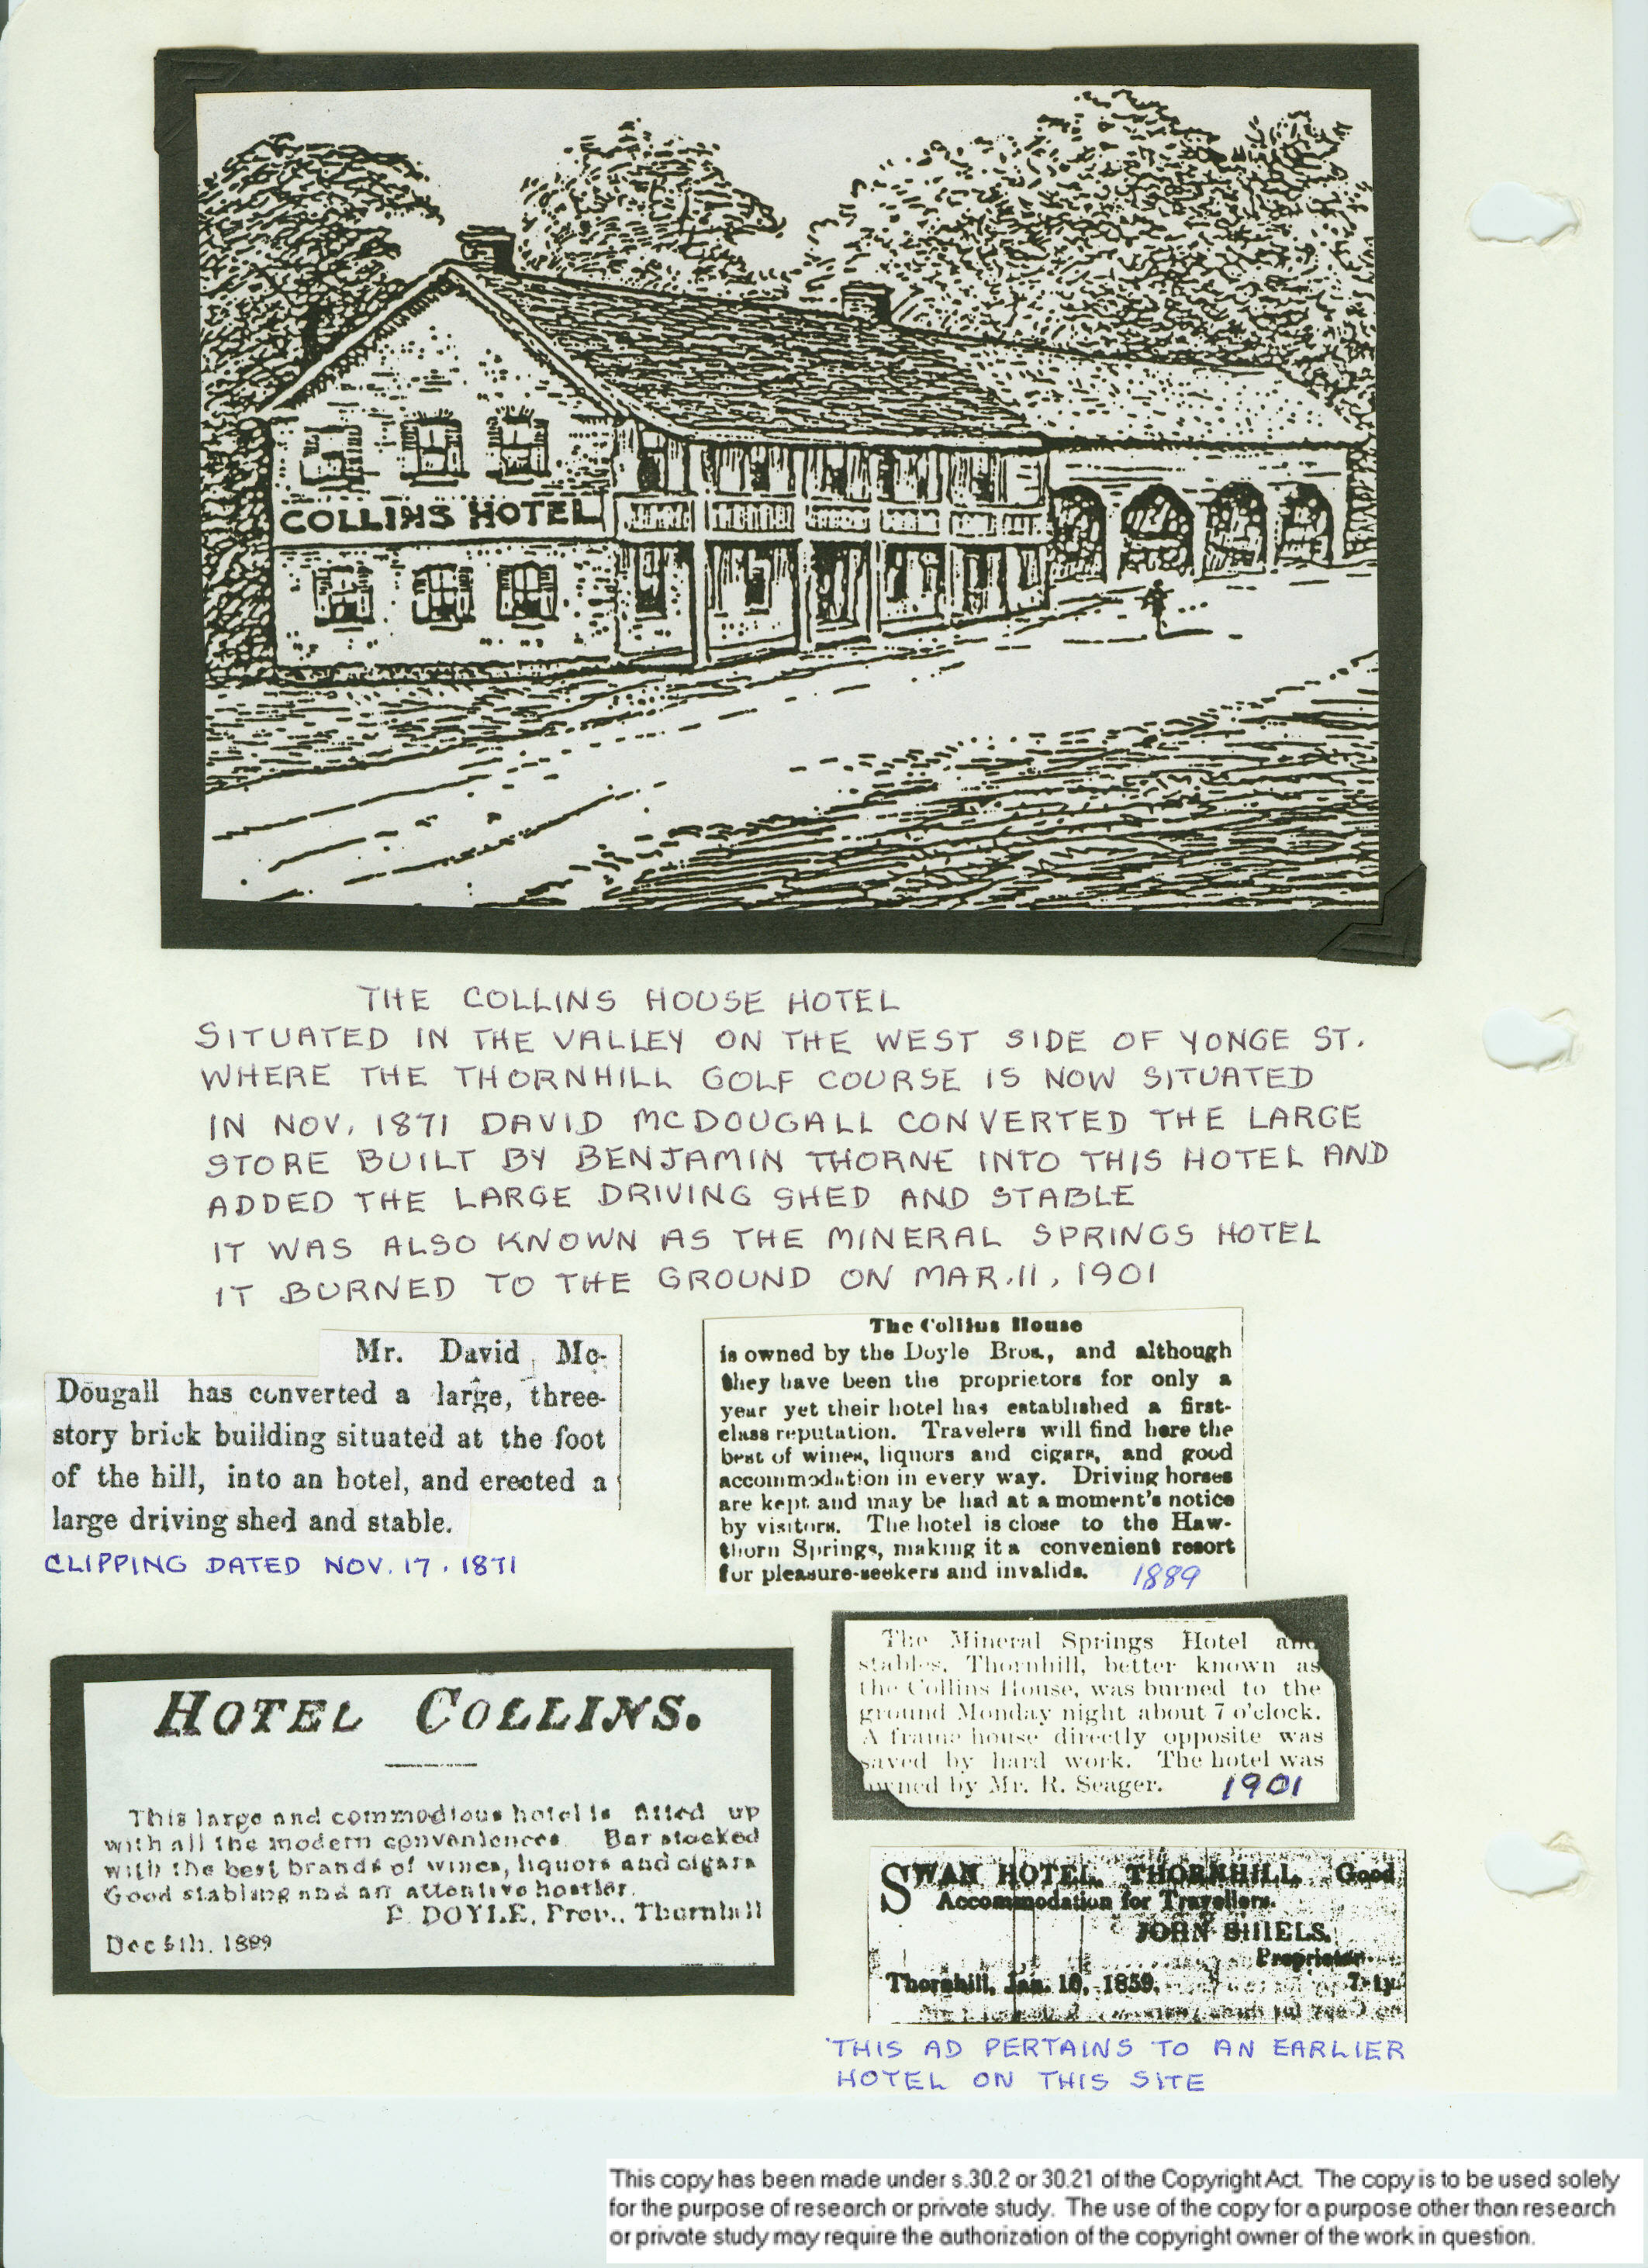 COLLINS HOTEL
THE COLLINS HOUSE HOTEL
SITUATED IN THE VALLEY ON THE WEST SIDE OF YONGE ST.
WHERE THE THORNHILL GOLF COURSE IS NOW SITUATED
IN NOV. 1871 DAVID MCDOUGALL CONVERTED THE LARGE
STORE BUILT BY BENJAMIN THORNE INTO THIS HOTEL AND
ADDED THE LARGE DRIVING SHED AND STABLE
IT WAS ALSO KNOWN AS THE MINERAL SPRINGS HOTEL
IT BURNED TO THE GROUND ON MAR. 11, 1901
Mr. David Mc-
Dougall has converted a large, three-
story brick building situated at the foot
of the hill, into an hotel, and erected a
large driving shed and stable.
CLIPPING DATED NOV. 17. 1871
The Collins House
is owned by the Doyle Bros., and although
they have been the proprietors for only a
year yet their hotel has established a first-
class reputation. Travelers will find here the
best of wines, liquors and cigars, and good
accommodation in every way. Driving horses
are kept and may be had at a moment's notice
by visitors. The hotel is close to the Haw-
thorn Springs, making it a convenient resort
for pleasure-seekers and invalids. 1889
HOTEL COLLINS.
This large and commodious hotel is fitted up
with all the modern conveniences. Bar stocked
with the best brands of wines, liquors and cigars
Good stabling and an attentive hostler.
P. DOYLE, Prop., Thornhill
Dec 5th, 1889
The Mineral Springs Hotel and
stables, Thornhill, better known as
the Collins House, was burned to the
ground Monday night about 7 o'clock.
A frame house directly opposite was
saved by hard work. The hotel was
owned by Mr. R. Seager. 1901
SWAN HOTEL, THORNHILL. Good
Accommodation for Travellers.
JOHN SHIELS,
Proprietor.
Thornhill, Jan. 10, 1859. 7-ly
THIS AD PERTAINS TO AN EARLIER
HOTEL ON THIS SITE
This copy has been made under s.30.2 or 30.21 of the Copyright Act. The copy is to be used solely
for the purpose of research or private study. The use of the copy for a purpose other than research
or private study may require the authorization of the copyright owner of the work in question.